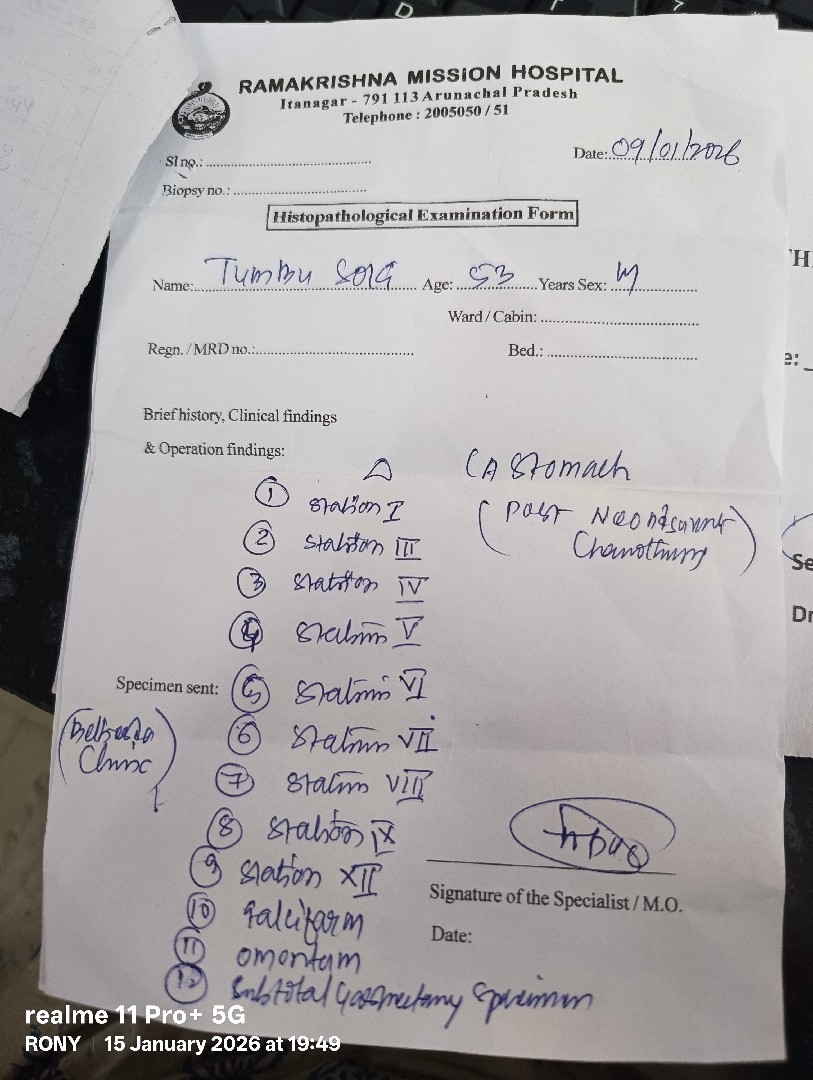 RAMAKRISHNA MISSION HOSPITAL
Itanagar - 791 113 Arunachal Pradesh
Telephone : 2005050 / 51
Sl no.:
Date: 09/01/2026
Biopsy no.:
Histopathological Examination Form
Name: Tumbu Age: 53 Years Sex: M
Ward / Cabin:
Regn. / MRD no.:
Bed.:
Brief history, Clinical findings
& Operation findings:
△ CA Stomach
(Post
① Station I
② Station III
③ Station IV
④ Station V
Specimen sent: ⑤ Station VI
⑥ Station VII
Clinic
⑦ Station VIII
⑧ Station IX
⑨ Station XII
Signature of the Specialist / M.O.
⑩ Falcifarm
Date:
⑪ Omentam
⑫ Subtotal Gastrectomy Specimen
realme 11 Pro+ 5G
RONY 15 January 2026 at 19:49